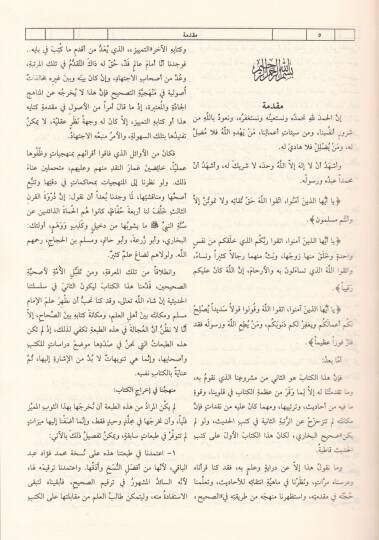 ٥
مقدمة
بسم الله الرحمن الرحيم
مقدمة
إنَّ الحمدَ للهِ نحمدُه ونستعينُه ونستغفرُه، ونعوذُ باللهِ من
شرورِ أنفُسِنا، ومن سيئاتِ أعمالِنا، مَنْ يَهْدِه اللهُ فلا مُضِلَّ
له، ومَنْ يُضْلِلْ فلا هاديَ له.
وأشهدُ أنْ لا إلهَ إلاَّ اللهُ وحدَه لا شريكَ له، وأشهدُ أنَّ
محمداً عبدُه ورسولُه.
﴿يا أيها الذينَ آمنوا، اتقوا اللهَ حقَّ تُقاتِه ولا تموتُنَّ إلاَّ
وأنتُم مسلمون﴾.
﴿يا أيها الناسُ، اتقوا ربَّكم الذي خلَقَكم من نفسٍ
واحدةٍ وخلَقَ منها زوجَها، وبَثَّ منهما رجالاً كثيراً ونساءً،
واتقوا اللهَ الذي تساءَلونَ به والأرحامَ، إنَّ اللهَ كانَ عليكم
رقيباً﴾.
﴿يا أيها الذينَ آمنوا، اتقوا اللهَ وقُولوا قولاً سَديداً يُصْلِحْ
لكم أعمالَكم ويغفِرْ لكم ذنوبَكم، ومَنْ يُطِعِ اللهَ ورسولَه فقد
فازَ فوزاً عظيماً﴾.
أمَّا بعدُ:
فإنَّ هذا الكتابَ هو الثاني من مشروعِنا الذي نقومُ به،
وما تقدمَتْنا له إلاَّ لِمَا وَقَرَ من عظمةِ الكتابِ في قلوبِنا، وقوةِ
ما فيه من أحاديثَ، وترتيبِها، ومهما كانَ عليه من نقداتٍ فإنَّ
مكانتَه لم تتزحزحْ عن الرتبةِ الثانيةِ في كتبِ الحديثِ، ولو لم
يكنْ «صحيح البخاري» لكانَ هذا الكتابُ الأولَ على كتبِ
الحديثِ قاطبةً.
وما نقولُ هذا إلاَّ عن درايةٍ وعلمٍ به، فقد كنا قرأناه
ودرسناه مراتٍ، ونَظَرْنا في ماهيَّةِ انتقائِه للأحاديثِ، وتعلَّمنا
حُجَّتَه في مقدمتِه، واستظهرنا منهجَه من طريقتِه في «الصحيح»،
وكتابِه الآخرِ «التمييز»، الذي يُعَدُّ من أقدمِ ما كُتِبَ في بابِه..
فوجدنا أنَّا أمامَ عالِمٍ فَذٍّ، حُقَّ له ذاكَ التقدُّمُ في تلكَ المرتبةِ،
وعُدَّ من أصحابِ الاجتهادِ، وإنْ كانَ بينَه وبينَ غيرِه مخالفاتٌ
أصوليةٌ في مَنْهَجيَّةِ التصحيحِ فإنَّ هذا لا يُخرجُه عن المناهجِ
الجادَّةِ والمُعتبرةِ، إذْ ما قالَ أمراً من الأصولِ في مقدمةِ كتابِه
هذا أو كتابِه التمييز، إلاَّ كانَ له وجهةُ نظرٍ عقليَّةٌ، لا يمكنُ
تفنيدُها بتلكَ السهولةِ، والأمرُ منبعُه الاجتهادُ.
فكانَ من الأوائلِ الذي فاقوا أقرانَهم بمنهجياتٍ طبَّقُوها
عمليّاً، خائضينَ غمارَ النقدِ منهم وعليهم، متحملينَ عناءَ
ذلك. ولو نظرنا إلى المنهجياتِ بمحاكماتٍ في دقتِها وتتبُّعِ
أصحِّها ومناقشتِها، لَمَا وجدنا بُعداً أن نقولَ: إنَّ ذُروةَ القرنِ
الثالثِ خَلَّفَ لنا أربعةَ حُفَّاظٍ، كانوا هُم الحُماةَ الذابِّينَ عن
سُنَّةِ النبيِّ ﷺ ما يَشوبُها من دخيلٍ وكَذِبٍ وَوَهْمٍ، أولئك:
البخاريُّ، وأبو زُرعةَ، وأبو حاتمٍ، ومسلمُ بن الحجاجِ، رحمهم
اللهُ. ولولاهم لضاعَ علمٌ كثيرٌ.
وانطلاقاً من تلكَ المعرفةِ، ومن تَمَثُّلِ الأُمَّةِ لأصحيَّةِ
الصحيحينِ، قَدَّمنا هذا الكتابَ ليكونَ الثاني في سلسلتِنا
الحديثيةِ إنْ شاءَ اللهُ تعالى، وقد كنا نُحِبُّ أن نُظهِرَ علمَ الإمامِ
مسلمٍ ومكانتَه بينَ أهلِ العلمِ، ومكانةَ كتابِه بينَ الصِّحاحِ، إلاَّ
أنَّا لا نظُنُّ أنَّ العُجالةَ في هذه الطبعةِ تكفي لذلك، إذْ لم تكن
هذه الطبعاتُ التي نحنُ في صَدَدِها موضعَ دراساتٍ للكتبِ
وأصحابِها، وإنَّما هي تنويهاتٌ لا بُدَّ من الإشارةِ إليها، ثُمَّ
عنايةٌ بالكتابِ نفسِه.
منهجُنا في إخراجِ الكتابِ:
لم يكنِ المرادُ من هذه الطبعةِ أن نُخرجَها بهذا الثوبِ المميَّزِ
فنيّاً، وأن نُخرجَها في مجلَّدٍ وحيدٍ فقط، وإنَّما أضفنا إليها ميزاتٍ
لم تتوفَّرْ في طبعاتٍ سابقةٍ، ويمكنُ تفصيلُ ذلك بالآتي:
١ - اعتمدنا في طبعتِنا هذه على نُسخةِ محمد فؤاد عبد
الباقي، لأنَّها من أفضلِ النُّسَخِ وأدقِّها. واعتمدنا ترقيمَه لها،
لأنَّه السائدُ المشهورُ في ترقيمِ الصحيحِ، فأبقيناه لتبقى
الاستفادةُ منه، وليتمكنَ طالبُ العلمِ من مقابلتِها على الكتبِ